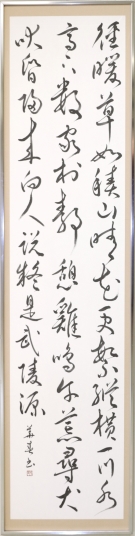 徑暖草如積山晴花更繁縱橫一川水
高下數家村靜憩雞鳴午荒尋犬
吠昏歸來向人說疑是武陵源